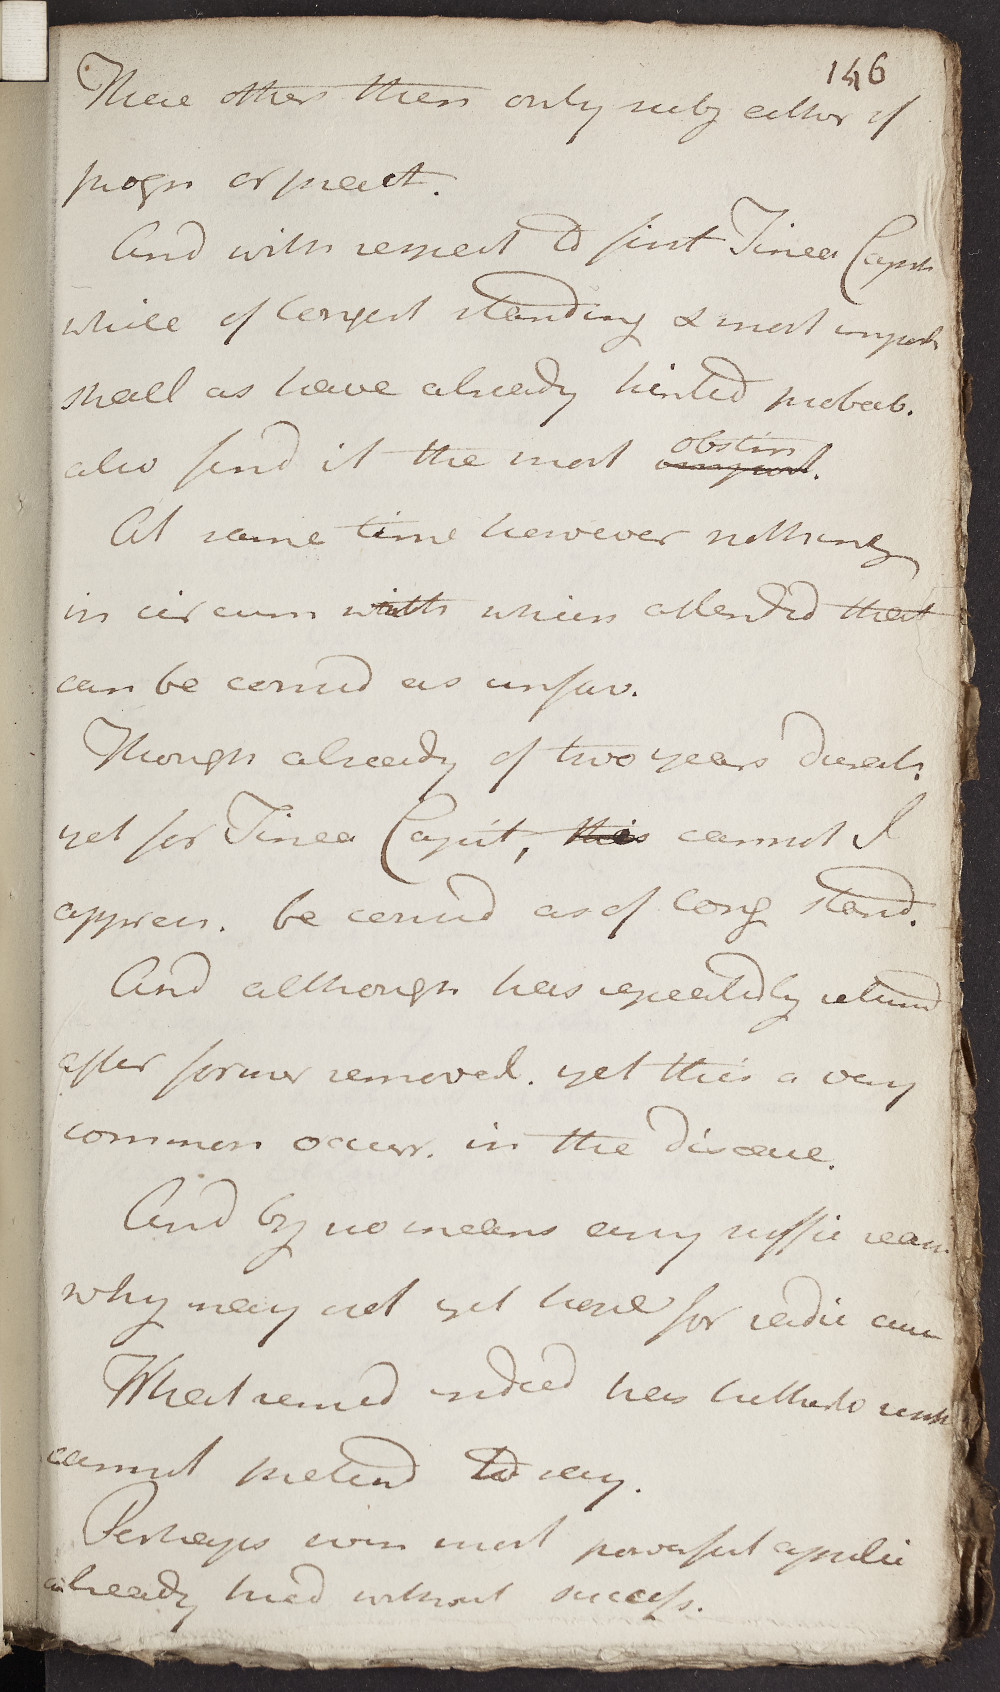 146
These others then only subj either of
progn or pract.
And with respect to first Tinea Capit
while of longest standing & most import
shall as have already hinted probab.
also find it the most obstin import.
At same time however nothing
in circum with which attended that
can be consid as unfav.
Though already of two years durat.
yet for Tinea Capit, this cannot I
appreh. be consid as of long stand.
And although has repeatedly returnd
after former removal. yet this a very
common occurr. in the disease.
And by no means any suffic reason
why may not yet hope for radic cure
What remed indeed has hitherto
cannot pretend to say.
Perhaps even most powerful applic
already tried without success.